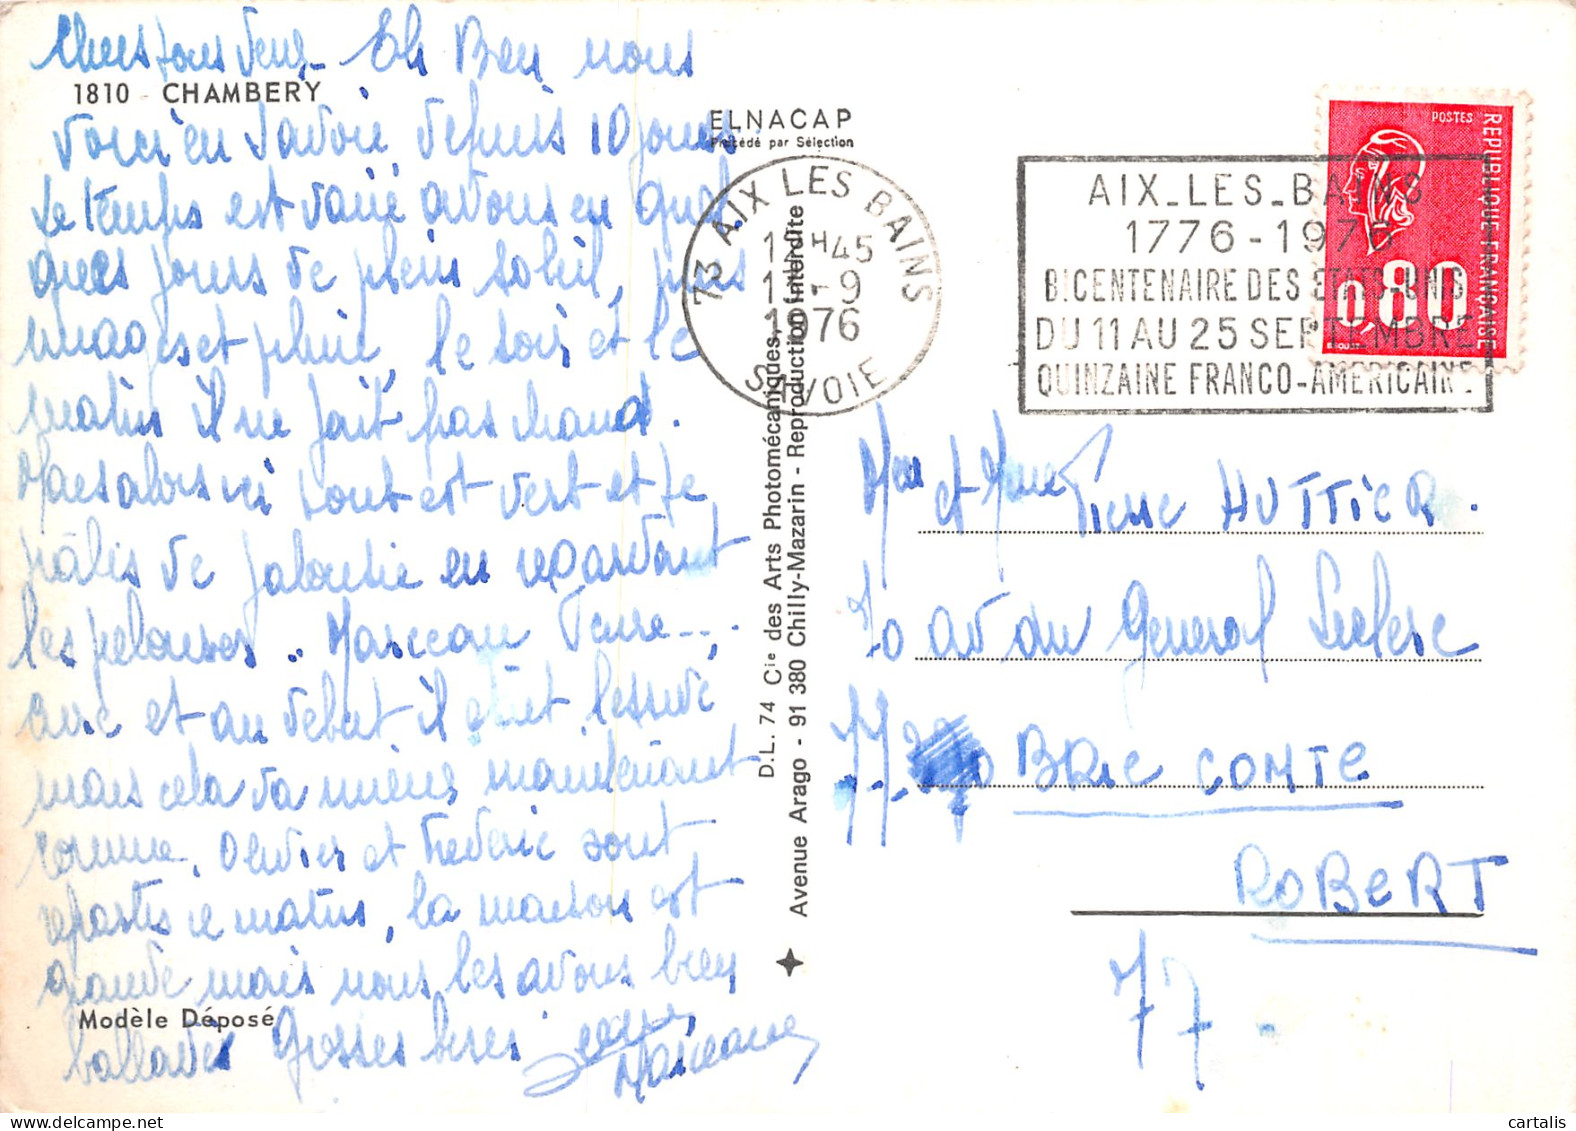 Chers tous deux - Eh Bien nous
1810 - CHAMBERY
voici en Savoie, depuis 10 jours
Le temps est varié avons eu quel
ques jours de plein soleil, puis
nuages et pluie, le soir et le
matin il ne fait pas chaud.
Mais alors ici tout est vert et je
pâlis de jalousie en regardant
les pelouses .. Marceau
avec et au début il était lessivé
mais cela va mieux maintenant
comme, Olivier et Frédéric sont
repartis ce matin, la maison est
grande mais nous les avons bien
balladés Grosses bises
Marceau
Modèle Déposé
ELNACAP
Procédé par Sélection
D.L. 74 Cie des Arts Photomécaniques
Avenue Arago - 91 380 Chilly-Mazarin - Reproduction Interdite
73 AIX LES BAINS
H45
- 9
1976
SAVOIE
AIX_LES_BAINS
1776-1976
BICENTENAIRE DES ETATS-UNIS
DU 11 AU 25 SEPTEMBRE
QUINZAINE FRANCO-AMERICAINE
POSTES
REPUBLIQUE FRANÇAISE
0,80
et Mme Pierre HUTTIER.
70 av du General Leclerc
77
BRIE COMTE
ROBERT
77.
cartalis